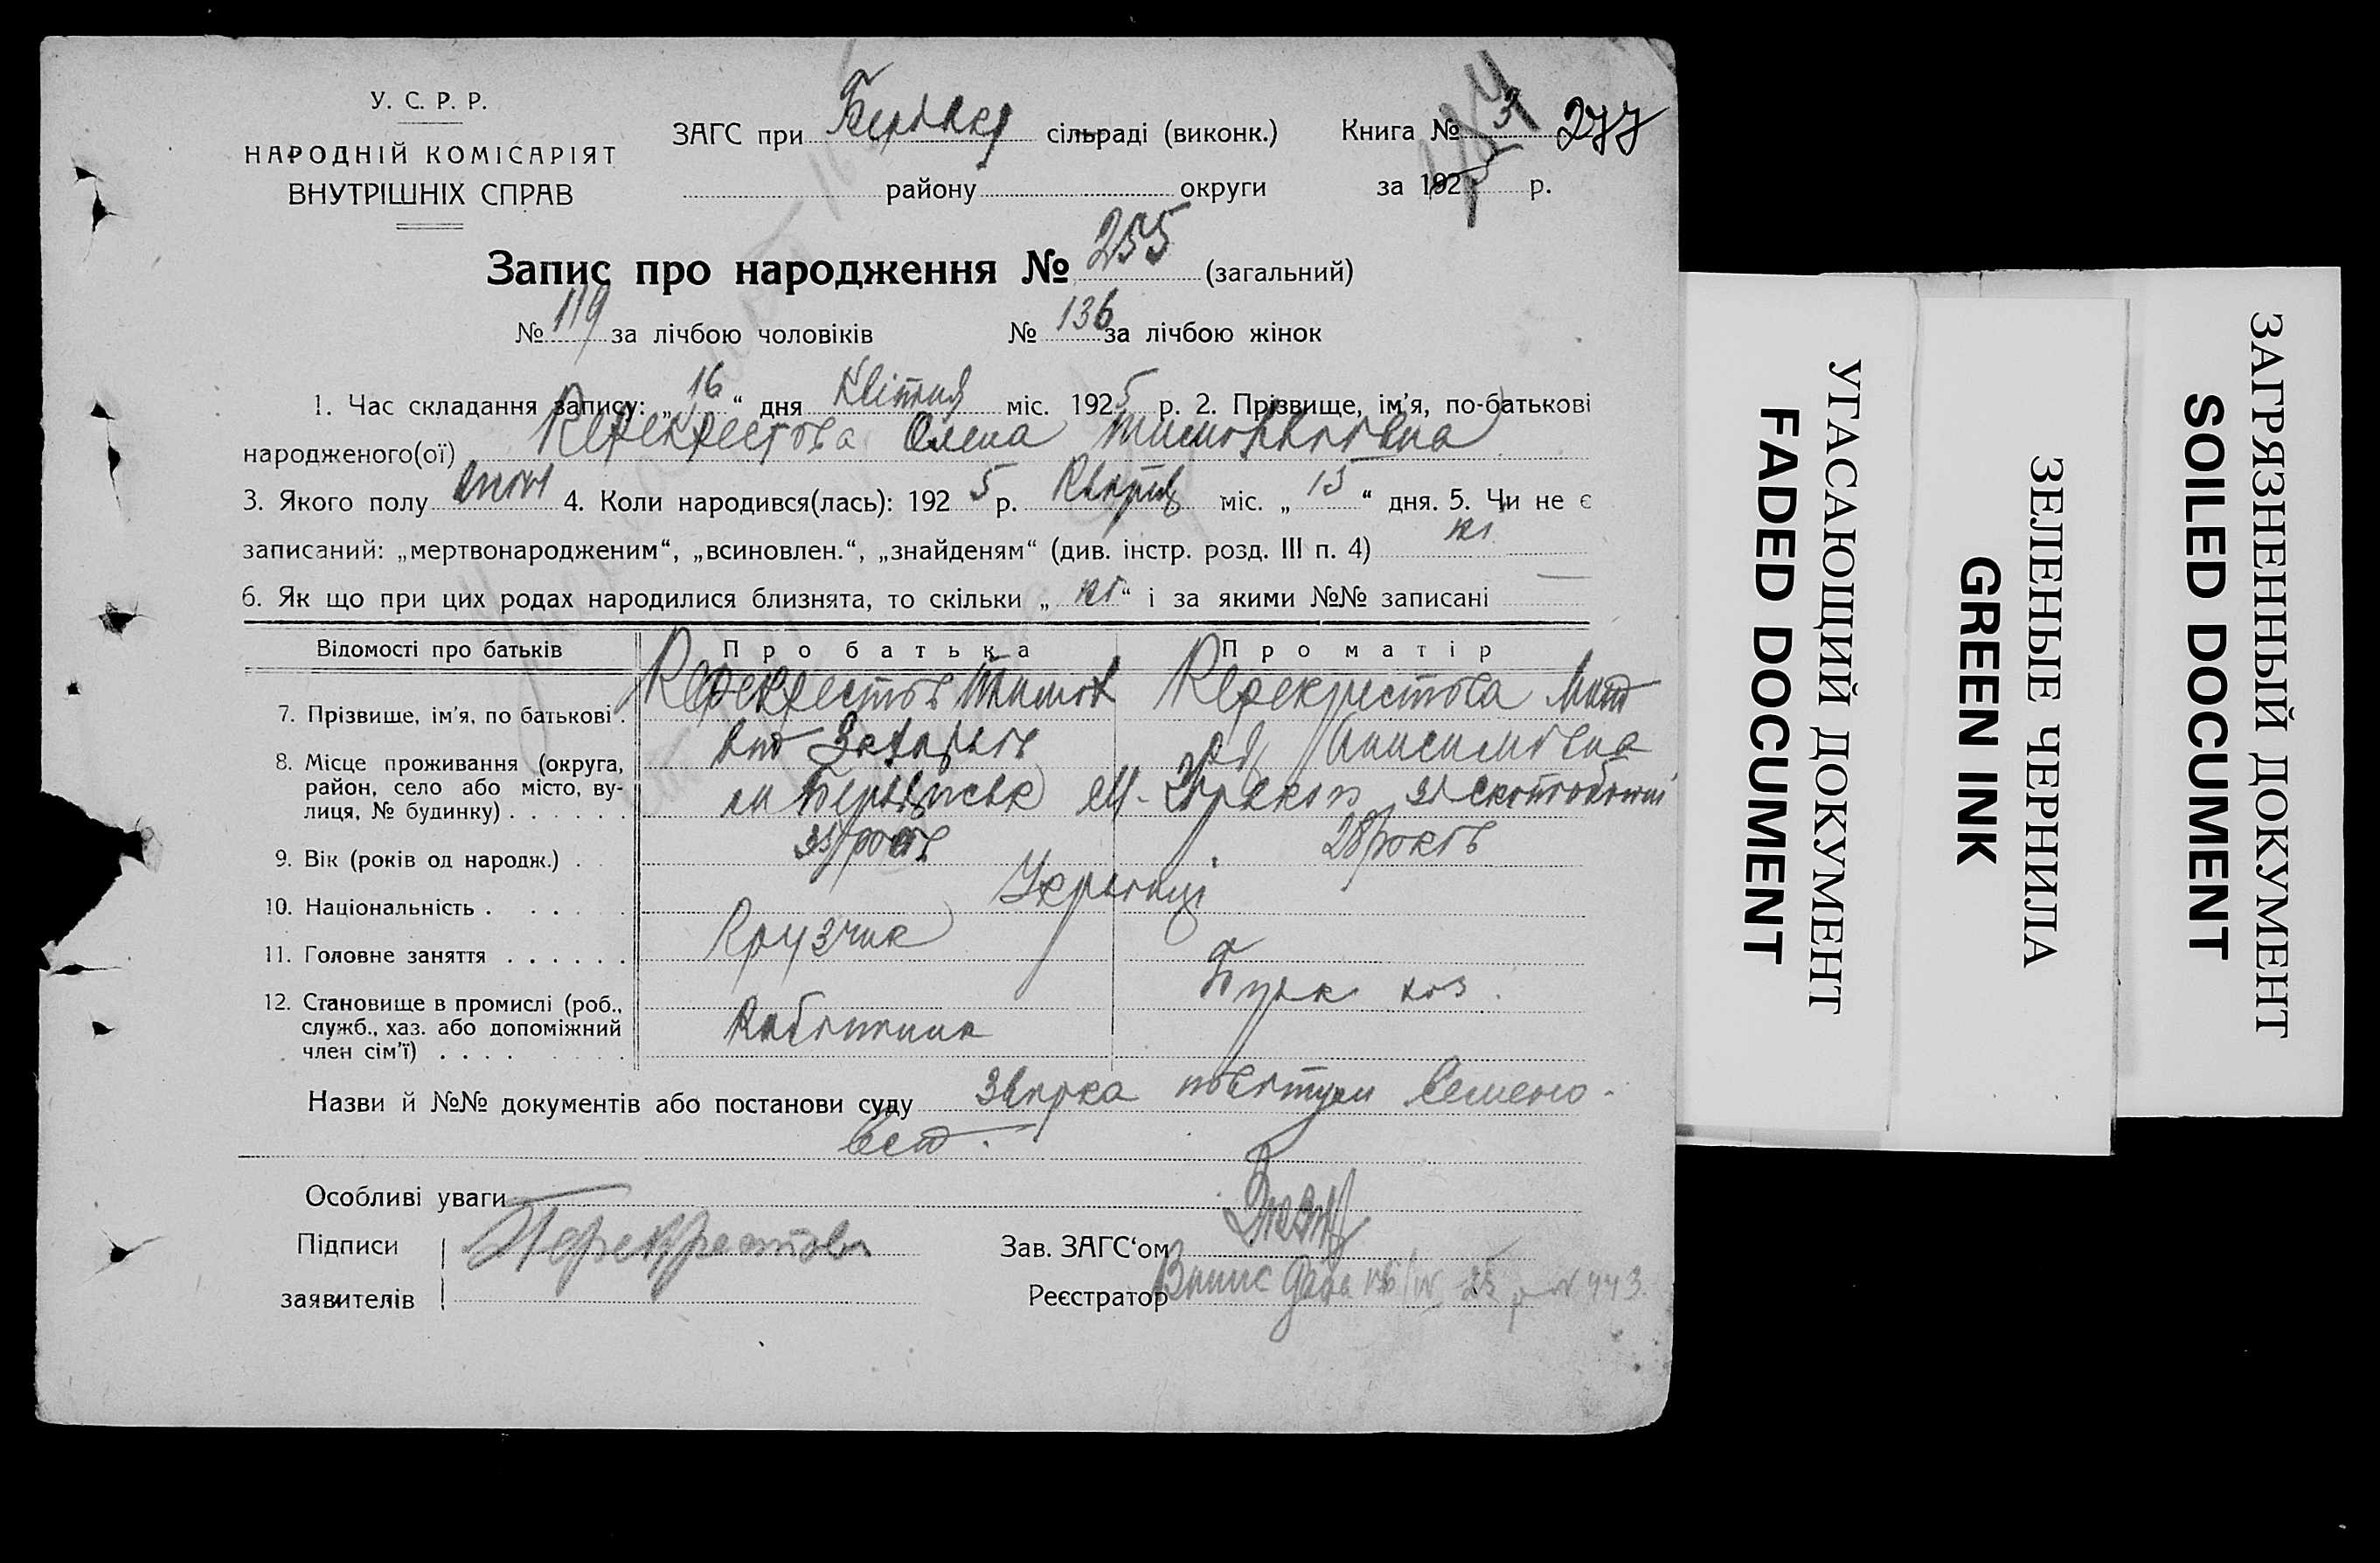 У. С. Р. Р.
НАРОДНІЙ КОМІСАРІЯТ
ВНУТРІШНІХ СПРАВ
ЗАГС при сільраді (виконк.) Книга № 3 277
району округи за 192 5 р.
Запис про народження № 255 (загальний)
№ 119 за лічбою чоловіків № 136 за лічбою жінок
1. Час складання запису: „ 16 “ дня Квітня міс. 192 5 р. 2. Прізвище, ім'я, по-батькові
народженого(ої) Перекрестова Олена Тимофіївна
3. Якого полу жін 4. Коли народився(лась): 192 5 р. Квітня міс. „ 15 “ дня. 5. Чи не є
записаний: „мертвонародженим“, „всиновлен.“, „знайденям“ (див. інстр. розд. III п. 4) ні
6. Як що при цих родах народилися близнята, то скільки „ ні “ і за якими №№ записані —
Відомості про батьків Про батька Про матір
7. Прізвище, ім'я, по батькові . Перекрестов Перекрестова
8. Місце проживання (округа,
район, село або місто, ву-
лиця, № будинку) . . . . . . Анисимовна
9. Вік (років од народж.) . років 28 років
10. Національність . . . . . Українці
11. Головне заняття . . . . . . Грузчик
12. Становище в промислі (роб.,
служб., хаз. або допоміжний
член сім'ї) . . . . . . . . . Робітник хоз.
Назви й №№ документів або постанови суду
Особливі уваги
Підписи Перекрестов Зав. ЗАГС‘ом
заявителів Реєстратор
ЗАГРЯЗНЕННЫЙ ДОКУМЕНТ
SOILED DOCUMENT
ЗЕЛЕНЫЕ ЧЕРНИЛА
GREEN INK
УГАСАЮЩИЙ ДОКУМЕНТ
FADED DOCUMENT